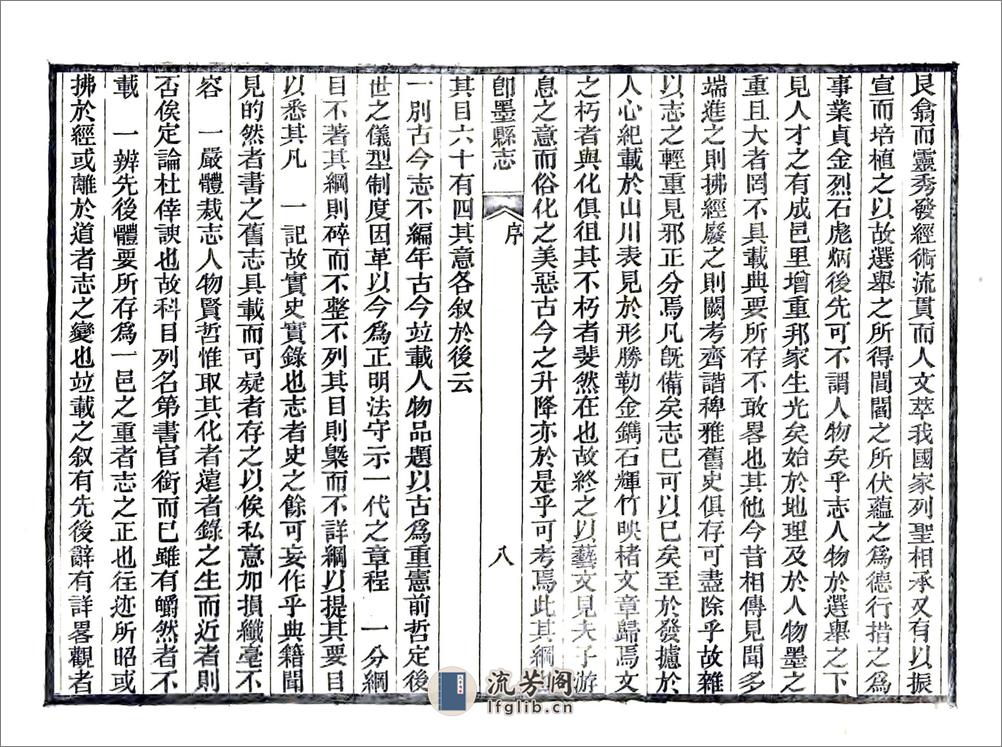 良翕而靈秀發經術流貫而人文萃我國家列聖相承又有以振
宣而培植之以故選舉之所得閭閻之所伏蘊之爲德行措之爲
事業貞金烈石彪炳後先可不謂人物矣乎志人物於選舉之下
見人才之有成邑里增重邦家生光矣始於地理及於人物墨之
重且大者罔不具載典要所存不敢畧也其他今昔相傳見聞多
端進之則拂經廢之則闕考齊諧稗雅舊史俱存可盡除乎故雜
以志之輕重見邪正分焉凡旣備矣志已可以已矣至於發攄於
人心紀載於山川表見於形勝勒金鐫石輝竹映楮文章歸焉文
之朽者與化俱徂其不朽者斐然在也故終之以藝文見夫子游
息之意而俗化之美惡古今之升降亦於是乎可考焉此其綱
卽墨縣志
序
八
其目六十有四其意各叙於後云
一別古今志不編年古今竝載人物品題以古爲重憲前哲定後
世之儀型制度因革以今爲正明法守示一代之章程 一分綱
目不著其綱則碎而不整不列其目則槩而不詳綱以提其要目
以悉其凡 一記故實史實錄也志者史之餘可妄作乎典籍聞
見的然者書之舊志具載而可疑者存之以俟私意加損纖毫不
容 一嚴體裁志人物賢哲惟取其化者遠者錄之生而近者則
否俟定論杜倖諛也故科目列名第書官銜而已雖有皭然者不
載 一辨先後體要所存爲一邑之重者志之正也往迹所昭或
拂於經或離於道者志之變也竝載之叙有先後辭有詳畧觀者
流芳阁
lfglib.cn